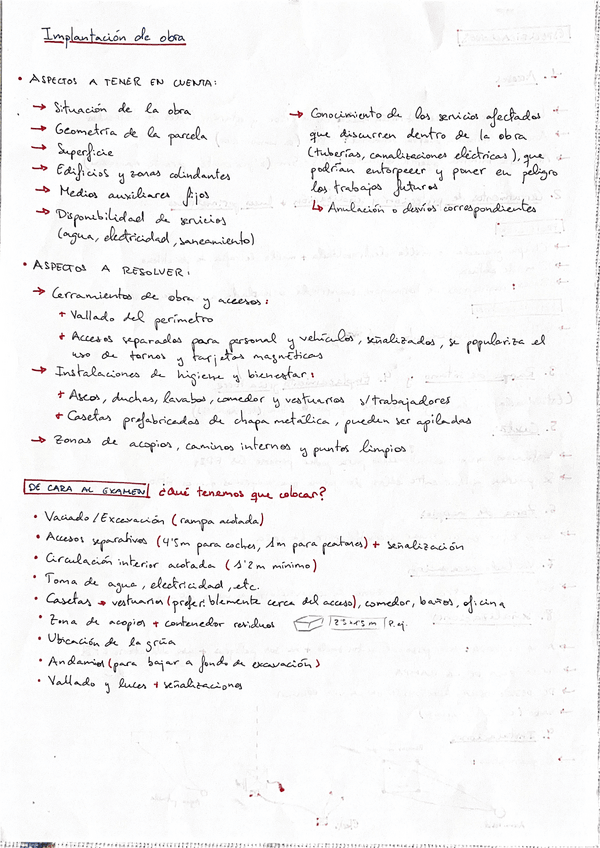 Implantación de obra
• ASPECTOS A TENER EN CUENTA:
→ Situación de la obra
→ Geometría de la parcela
→ Superficie
→ Edificios y zonas colindantes
→ Medios auxiliares fijos
→ Disponibilidad de servicios
(agua, electricidad, saneamiento)
→ Conocimiento de los servicios afectados
que discurren dentro de la obra
(tuberías, canalizaciones eléctricas), que
podrían entorpecer y poner en peligro
los trabajos futuros
↳ Anulación o desvíos correspondientes
• ASPECTOS A RESOLVER:
→ Cerramientos de obra y accesos:
+ Vallado del perímetro
+ Accesos separados para personal y vehículos, señalizados, se populariza el
uso de tornos y tarjetas magnéticas
→ Instalaciones de higiene y bienestar:
+ Aseos, duchas, lavabos, comedor y vestuarios s/trabajadores
+ Casetas prefabricadas de chapa metálica, pueden ser apiladas
→ Zonas de acopios, caminos internos y puntos limpios
DE CARA AL EXAMEN ¿Qué tenemos que colocar?
• Vaciado/Excavación (rampa acotada)
• Accesos separativos (4'5m para coches, 1m para peatones) + señalización
• Circulación interior acotada (1'2 m mínimo)
• Toma de agua, electricidad, etc.
• Casetas → vestuarios (preferiblemente cerca del acceso), comedor, baños, oficina
• Zona de acopios + contenedor residuos P.ej.
• Ubicación de la grúa
• Andamios (para bajar a fondo de excavación)
• Vallado y luces + señalizaciones